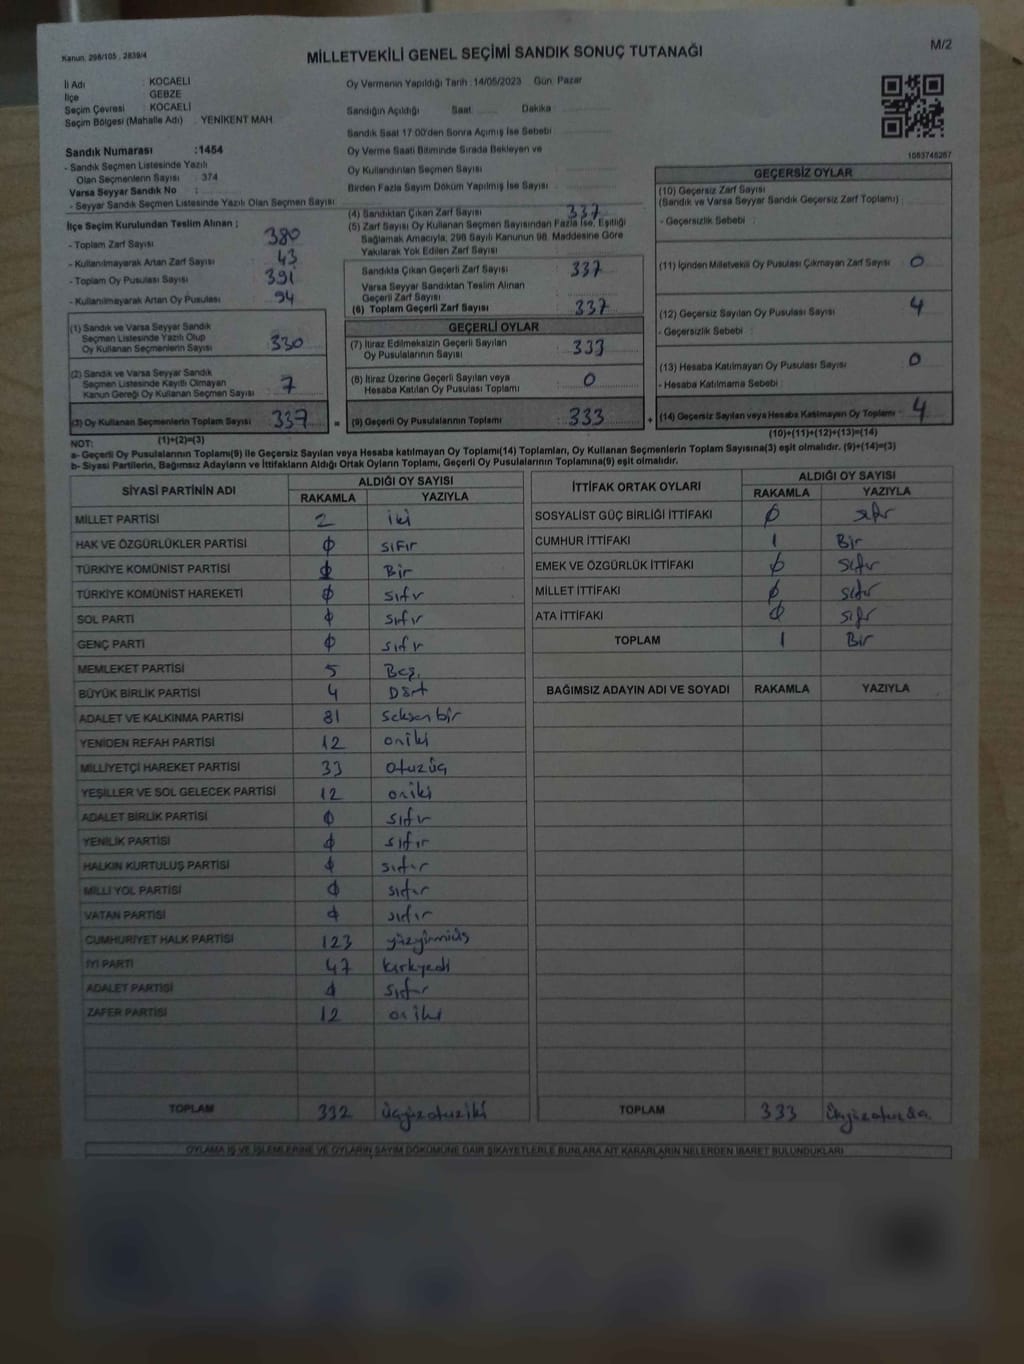 Kanun: 298/105 , 2839/4
MİLLETVEKİLİ GENEL SEÇİMİ SANDIK SONUÇ TUTANAĞI
M/2
İl Adı : KOCAELİ
İlçe : GEBZE
Seçim Çevresi : KOCAELİ
Seçim Bölgesi (Mahalle Adı) : YENİKENT MAH.
Oy Vermenin Yapıldığı Tarih : 14/05/2023 Gün: Pazar
Sandığın Açıldığı Saat : Dakika :
Sandık Saat 17:00'den Sonra Açılmış İse Sebebi :
Oy Verme Saati Bitiminde Sırada Bekleyen ve
Oy Kullandırılan Seçmen Sayısı
Birden Fazla Sayım Döküm Yapılmış İse Sayısı
1083748267
Sandık Numarası :1454
- Sandık Seçmen Listesinde Yazılı
Olan Seçmenlerin Sayısı : 374
Varsa Seyyar Sandık No :
- Seyyar Sandık Seçmen Listesinde Yazılı Olan Seçmen Sayısı:
İlçe Seçim Kurulundan Teslim Alınan ;
- Toplam Zarf Sayısı : 380
- Kullanılmayarak Artan Zarf Sayısı : 43
- Toplam Oy Pusulası Sayısı : 391
- Kullanılmayarak Artan Oy Pusulası :
(1) Sandık ve Varsa Seyyar Sandık
Seçmen Listesinde Yazılı Olup
Oy Kullanan Seçmenlerin Sayısı : 330
(2) Sandık ve Varsa Seyyar Sandık
Seçmen Listesinde Kayıtlı Olmayan
Kanun Gereği Oy Kullanan Seçmen Sayısı : 7
(3) Oy Kullanan Seçmenlerin Toplam Sayısı : 337
(4) Sandıktan Çıkan Zarf Sayısı : 337
(5) Zarf Sayısı Oy Kullanan Seçmen Sayısından Fazla İse, Eşitliği
Sağlamak Amacıyla, 298 Sayılı Kanunun 98. Maddesine Göre
Yakılarak Yok Edilen Zarf Sayısı :
Sandıkta Çıkan Geçerli Zarf Sayısı : 337
Varsa Seyyar Sandıktan Teslim Alınan
Geçerli Zarf Sayısı :
(6) Toplam Geçerli Zarf Sayısı : 337
GEÇERLİ OYLAR
(7) İtiraz Edilmeksizin Geçerli Sayılan
Oy Pusulalarının Sayısı : 333
(8) İtiraz Üzerine Geçerli Sayılan veya
Hesaba Katılan Oy Pusulası Toplamı : 0
= (9) Geçerli Oy Pusulalarının Toplamı : 333 +
GEÇERSİZ OYLAR
(10) Geçersiz Zarf Sayısı
(Sandık ve Varsa Seyyar Sandık Geçersiz Zarf Toplamı) :
- Geçersizlik Sebebi :
(11) İçinden Milletvekili Oy Pusulası Çıkmayan Zarf Sayısı : 0
(12) Geçersiz Sayılan Oy Pusulası Sayısı : 4
- Geçersizlik Sebebi :
(13) Hesaba Katılmayan Oy Pusulası Sayısı : 0
- Hesaba Katılmama Sebebi :
(14) Geçersiz Sayılan veya Hesaba Katılmayan Oy Toplamı : 4
NOT: (1)+(2)=(3)
(10)+(11)+(12)+(13)=(14)
a- Geçerli Oy Pusulalarının Toplamı(9) ile Geçersiz Sayılan veya Hesaba katılmayan Oy Toplamı(14) Toplamları, Oy Kullanan Seçmenlerin Toplam Sayısına(3) eşit olmalıdır. (9)+(14)=(3)
b- Siyasi Partilerin, Bağımsız Adayların ve İttifakların Aldığı Ortak Oyların Toplamı, Geçerli Oy Pusulalarının Toplamına(9) eşit olmalıdır.
SİYASİ PARTİNİN ADI ALDIĞI OY SAYISI
RAKAMLA YAZIYLA
MİLLET PARTİSİ 2 iki
HAK VE ÖZGÜRLÜKLER PARTİSİ 0 sıfır
TÜRKİYE KOMÜNİST PARTİSİ Bir
TÜRKİYE KOMÜNİST HAREKETİ 0 sıfır
SOL PARTİ 0 sıfır
GENÇ PARTİ 0 sıfır
MEMLEKET PARTİSİ 5 Beş
BÜYÜK BİRLİK PARTİSİ 4 Dört
ADALET VE KALKINMA PARTİSİ 81 seksenbir
YENİDEN REFAH PARTİSİ 12 oniki
MİLLİYETÇİ HAREKET PARTİSİ 33 otuzüç
YEŞİLLER VE SOL GELECEK PARTİSİ 12 oniki
ADALET BİRLİK PARTİSİ 0 sıfır
YENİLİK PARTİSİ 0 sıfır
HALKIN KURTULUŞ PARTİSİ 0 sıfır
MİLLİ YOL PARTİSİ 0 sıfır
VATAN PARTİSİ 0 sıfır
CUMHURİYET HALK PARTİSİ 123 yüzyirmiüç
İYİ PARTİ 47 kırkyedi
ADALET PARTİSİ 0 sıfır
ZAFER PARTİSİ 12 oniki
TOPLAM 332 üçyüzotuziki
İTTİFAK ORTAK OYLARI ALDIĞI OY SAYISI
RAKAMLA YAZIYLA
SOSYALİST GÜÇ BİRLİĞİ İTTİFAKI 0 sıfır
CUMHUR İTTİFAKI 1 Bir
EMEK VE ÖZGÜRLÜK İTTİFAKI 0 sıfır
MİLLET İTTİFAKI 0 sıfır
ATA İTTİFAKI 0 sıfır
TOPLAM 1 Bir
BAĞIMSIZ ADAYIN ADI VE SOYADI RAKAMLA YAZIYLA
TOPLAM 333
OYLAMA İŞ VE İŞLEMLERİNE VE OYLARIN SAYIM DÖKÜMÜNE DAİR ŞİKAYETLERLE BUNLARA AİT KARARLARIN NELERDEN İBARET BULUNDUKLARI